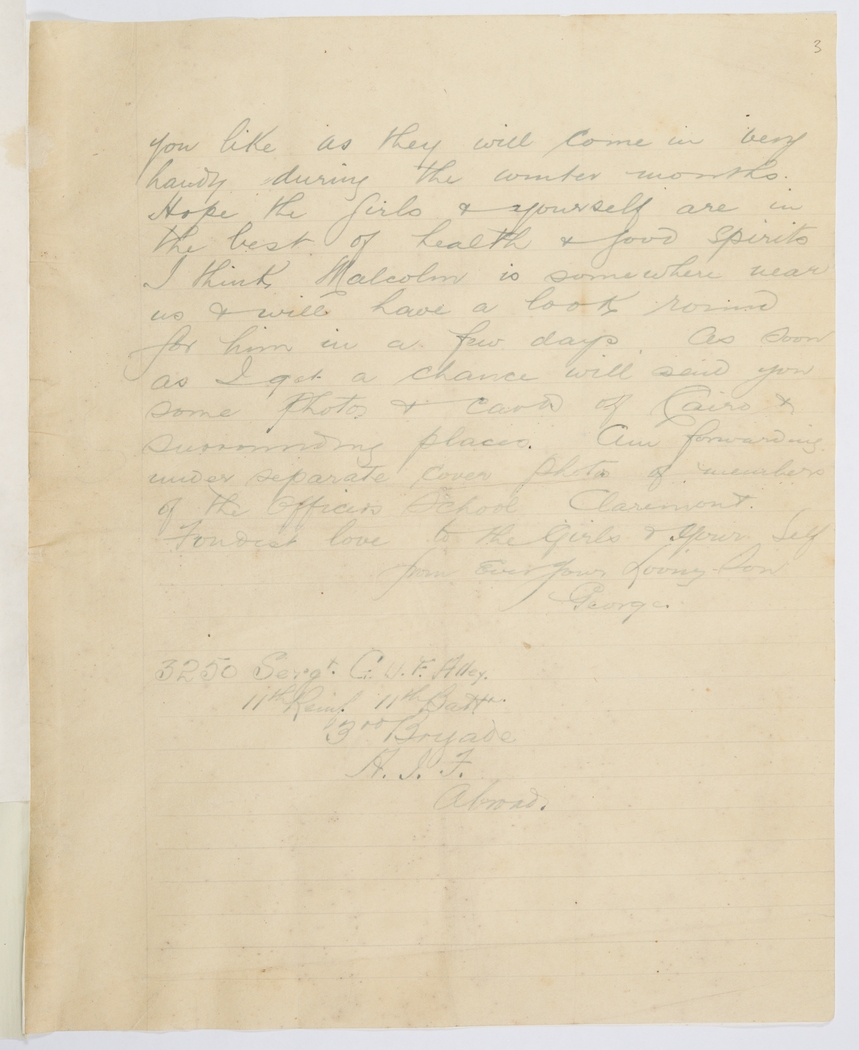 3
you like as they will come in very
handy during the winter months.
Hope the Girls & yourself are in
the best of health & good spirits
I think Malcolm is somewhere near
us & will have a look round
for him in a few days. As soon
as I get a chance will send you
some Photos & cards of Cairo &
surrounding places. Am forwarding
under separate cover photo of members
of the Officers School Claremont.
Fondest love to the Girls & Your Self
from Ever Your Loving Son
George.
3250 Sergt. G. W. F. Alley.
11th Reinf. 11th Batt.
3rd Brigade
A. I. F.
Abroad.